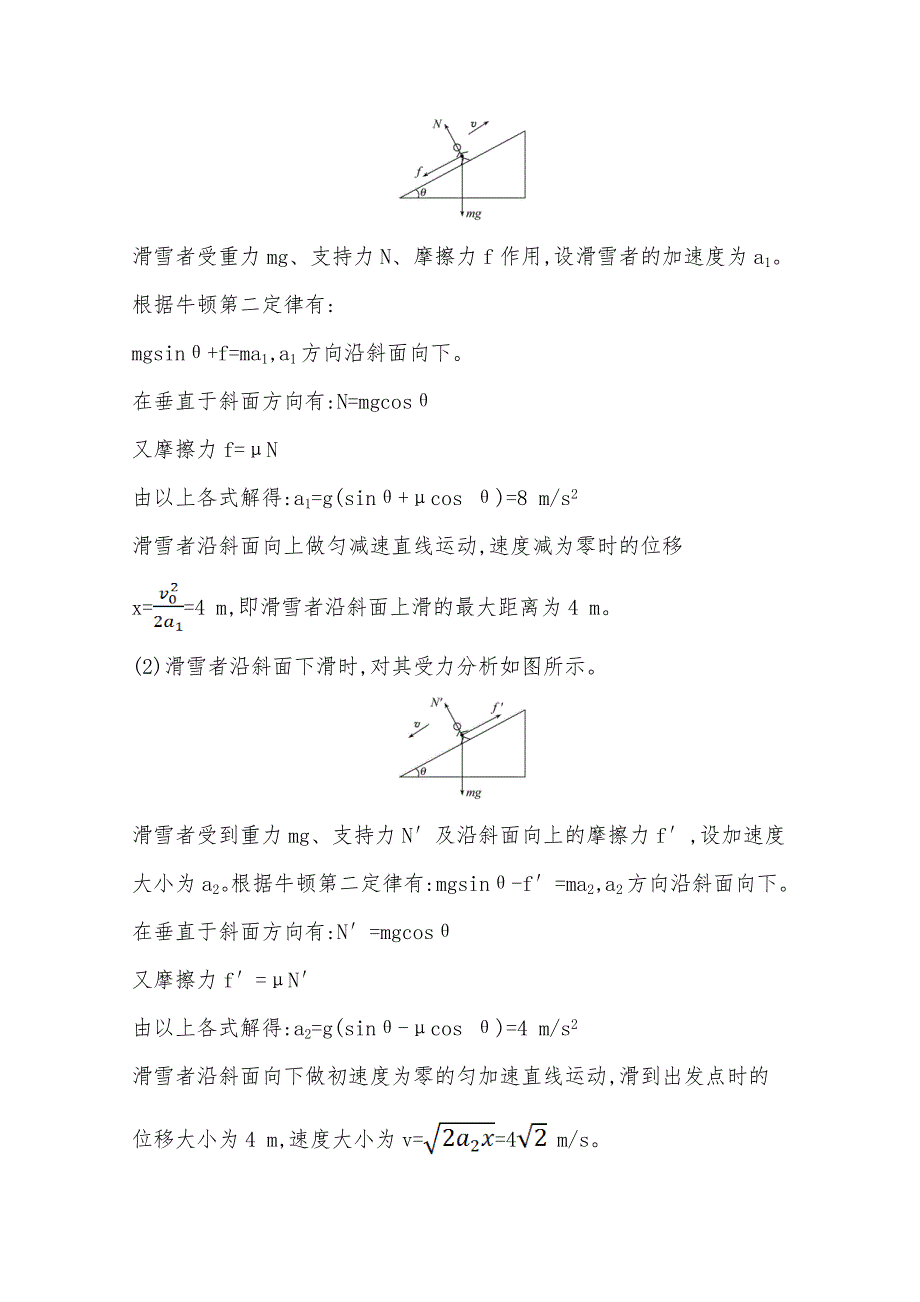 N
v
f
θ
mg
滑雪者受重力mg、支持力N、摩擦力f作用,设滑雪者的加速度为a₁。
根据牛顿第二定律有:
mgsinθ+f=ma₁,a₁方向沿斜面向下。
在垂直于斜面方向有:N=mgcosθ
又摩擦力f=μN
由以上各式解得:a₁=g(sinθ+μcos θ)=8 m/s²
滑雪者沿斜面向上做匀减速直线运动,速度减为零时的位移
x=\frac{v_0^2}{2a_1}=4 m,即滑雪者沿斜面上滑的最大距离为4 m。
(2)滑雪者沿斜面下滑时,对其受力分析如图所示。
N′
f′
v
θ
mg
滑雪者受到重力mg、支持力N′及沿斜面向上的摩擦力f′,设加速度
大小为a₂。根据牛顿第二定律有:mgsinθ-f′=ma₂,a₂方向沿斜面向下。
在垂直于斜面方向有:N′=mgcosθ
又摩擦力f′=μN′
由以上各式解得:a₂=g(sinθ-μcos θ)=4 m/s²
滑雪者沿斜面向下做初速度为零的匀加速直线运动,滑到出发点时的
位移大小为4 m,速度大小为v=\sqrt{2a_2x}=4\sqrt{2} m/s。